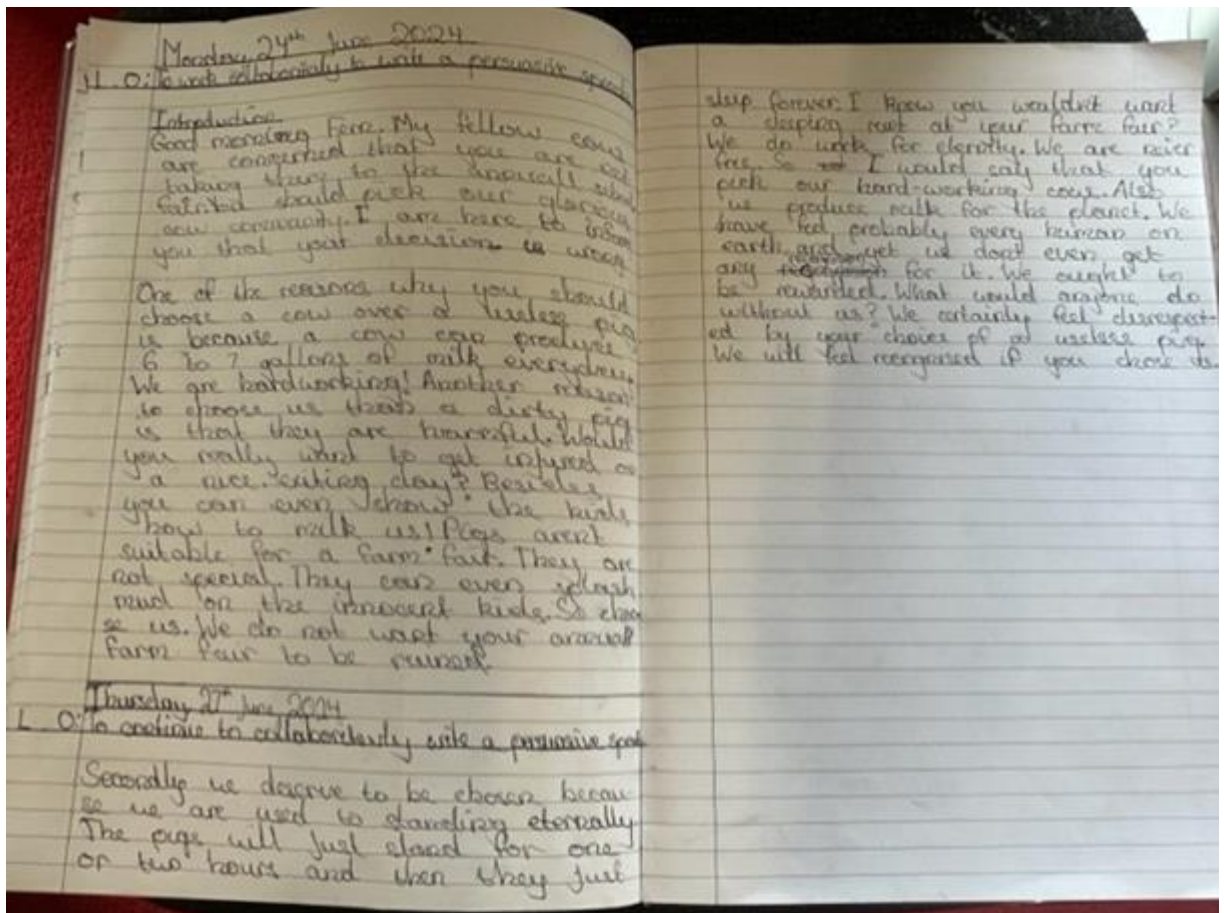 Monday 24th June 2024
L.O: To work collaborativly to write a persuasive speech
Introduction
Good morning Fern. My fellow cows
are concerned that you are not
taking them to the annual
should pick our glorious
cow community. I am here to inform
you that your decision is wrong
One of the reasons why you should
choose a cow over a useless pig
is because a cow can produce
6 to 7 gallons of milk everyday.
We are hardworking! Another reason
to choose us than a dirty pig
is that they are harmful. Would
you really want to get injured on
a nice exciting day? Besides
you can even show the kids
how to milk us! Pigs arent
suitable for a farm fair. They are
not special. They can even splash
mud on the innocent kids. So choo
se us. We do not want your annual
farm fair to be ruined.
Thursday 27th June 2024
L.O: To continue to collaboratively write a persuasive speech
Secondly we deserve to be chosen becau
se we are used to standing eternally
The pigs will just stand for one
or two hours and then they just
sleep forever. I know you wouldn't want
a sleeping at your farm fair?
We do work for eternity. We are never
free. So I would say that you
pick our hard-working cow. Also
we produce milk for the planet. We
have fed probably every human on
earth and yet we dont even get
any for it. We ought to
be rewarded. What would anyone do
without us? We certainly feel disrespect-
ed by your choice of a useless pig.
We will feel reorganised if you chose us.